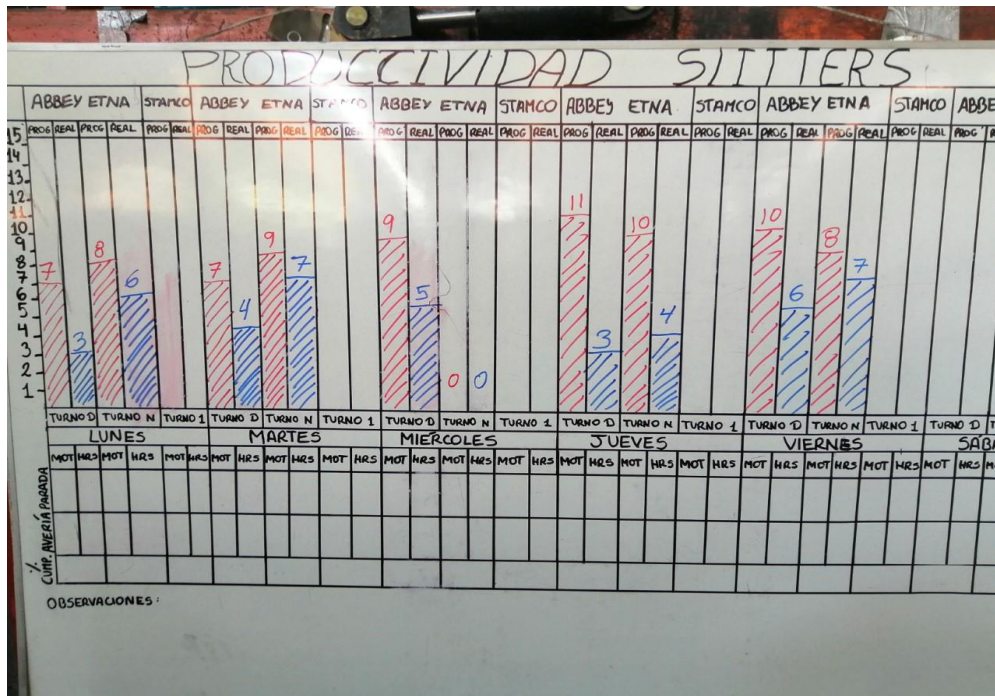 PRODUCTIVIDAD SLITTERS
ABBEY ETNA STAMCO ABBEY ETNA STAMCO ABBEY ETNA STAMCO ABBEY ETNA. STAMCO ABBEY ETNA STAMCO ABBE
15 PROG REAL PROG REAL PROG REAL PROG REAL PROG REAL PROG REAL PROG REAL PROG REAL PROG REAL PROG REAL PROG REAL PROG REAL PROG REAL PROG REAL PROG REAL PROG
14
13
12
11 11
10 9 10 10
9 8 9 8
8 7 7 7 7
7 6
6 5 6
5 4 4
4 3 3
3
2 0 0
1
TURNO D TURNO N TURNO 1 TURNO D TURNO N TURNO 1 TURNO D TURNO N TURNO 1 TURNO D TURNO N TURNO 1 TURNO D TURNO N TURNO 1 TURNO D
LUNES MARTES MIERCOLES JUEVES VIERNES SABA
MOT HRS MOT HRS MOT HRS MOT HRS MOT HRS MOT HRS MOT HRS MOT HRS MOT HRS MOT HRS MOT HRS MOT HRS MOT HRS MOT HRS MOT HRS MOT HRS M
PARADA
AVERÍA
% CUMP.
OBSERVACIONES: